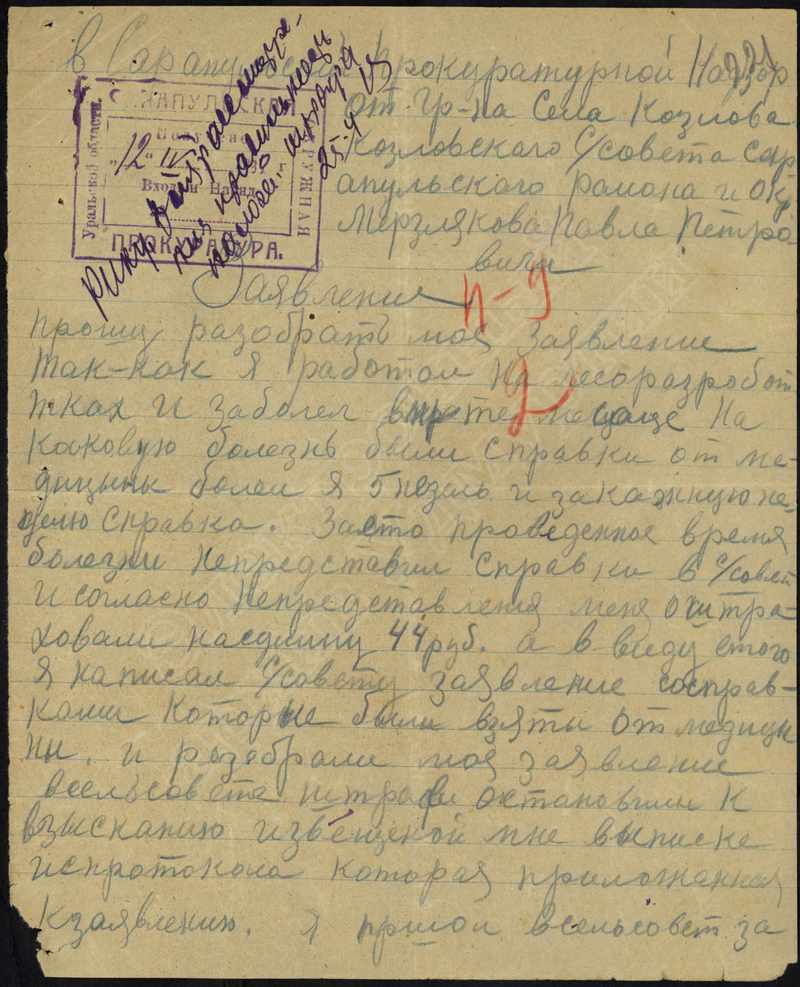 в Сарапульской прокуратурной Надзор
от гр-на Села Козлова
Козловского С/совета Сар
апульского района и окр
Мерзлякова Павла Петро
вича
САРАПУЛЬСКАЯ
Уральской области.
ОКРУЖНАЯ
"12" IV
ПРОКУРАТУРА.
25-9
Заявление
п-9
2
прошу разобрать мое заявление
так-как я работал на лесоразработ
тках и заболел в месяце на
каковую болезнь были справки от ме-
дицыны болел я 5 недель и закаждую не-
делю справка. Заето проведенное время
болезни непредставил Справки в С/совет
и согласно непредставления меня оштра-
ховали насумму 44 руб. а в виду етого
я написал С/совету заявление сосправ-
ками которые были взяты от медицы
ны. и разобрали мое заявление
всельсовете штраф остановили к
взысканию извещеной мне выписке
испротокола которая приложенная
кзаявлению. я пришол всельсовет за